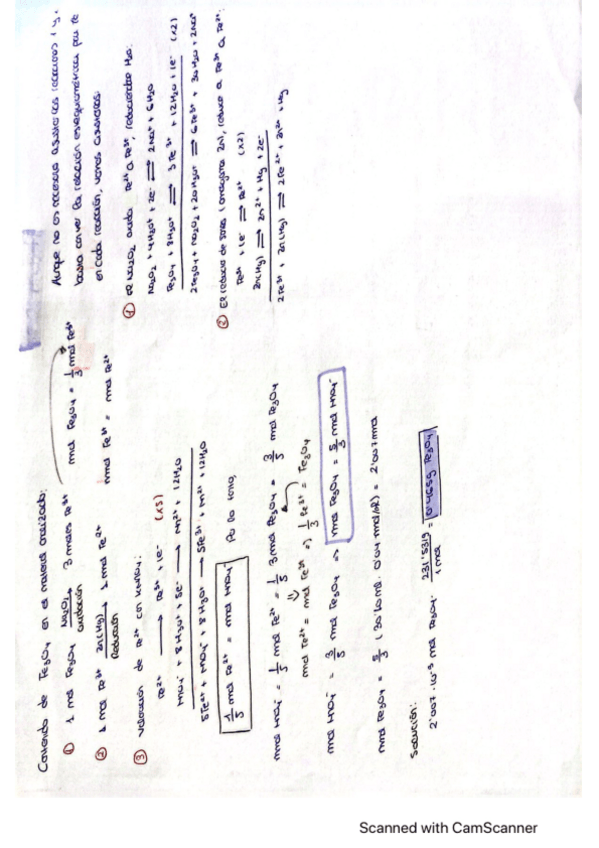 Contenido de Fe3O4 en el material analizado:
① 1 mol Fe3O4 Na2O2 → oxidación 3 moles Fe3+
mol Fe3O4 = 1/3 mol Fe3+
② 1 mol Fe3+ Zn(Hg) → Reducción 1 mol Fe2+
mol Fe3+ = mol Fe2+
③ valoración de Fe2+ con KMnO4:
Fe2+ → Fe3+ + 1e- (x5)
MnO4- + 8H3O+ + 5e- → Mn2+ + 12H2O
5Fe2+ + MnO4- + 8H3O+ → 5Fe3+ + Mn2+ + 12H2O
1/5 mol Fe2+ = mol MnO4-
Por lo tanto,
mol MnO4- = 1/5 mol Fe2+ = 1/5 3 mol Fe3O4 = 3/5 mol Fe3O4
mol Fe2+ = mol Fe3+ => 1/3 Fe3+ = Fe3O4
mol MnO4- = 3/5 mol Fe3O4 => mol Fe3O4 = 5/3 mol MnO4-
mol Fe3O4 = 5/3
= 2'007 mmol
Solución:
2'007·10-3 mol Fe3O4 · 231'5319 / 1 mol = 0'4659 Fe3O4
Aunque no es necesario ajustar las reacciones 1 y
en cada reacción, vamos a hacerlas:
① El Na2O2 oxida Fe2+ a Fe3+, reduciéndose H2O:
Na2O2 + 4H3O+ + 2e- ⇌ 2Na+ + 6H2O
Fe3O4 + 8H3O+ ⇌ 3Fe3+ + 12H2O + 1e- (x2)
2Fe3O4 + Na2O2 + 20H3O+ ⇌ 6Fe3+ + 30H2O + 2Na+
② El reductor de Jones (amalgama Zn), reduce a Fe3+ a Fe2+:
Fe3+ + 1e- ⇌ Fe2+ (x2)
Zn(Hg) ⇌ Zn2+ + Hg + 2e-
2Fe3+ + Zn(Hg) ⇌ 2Fe2+ + Zn2+ + Hg
Scanned with CamScanner